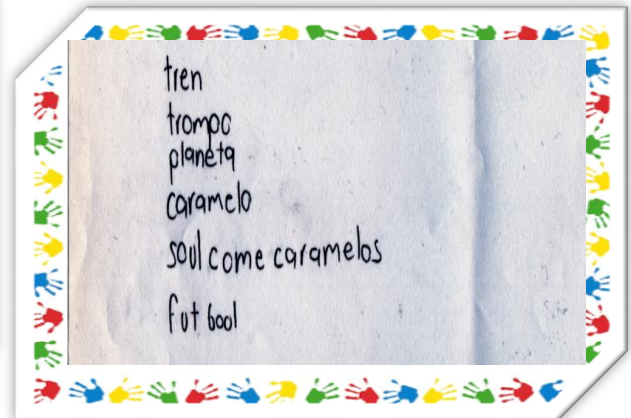 tren
trompo
planeta
caramelo
soul come caramelos
fut bool